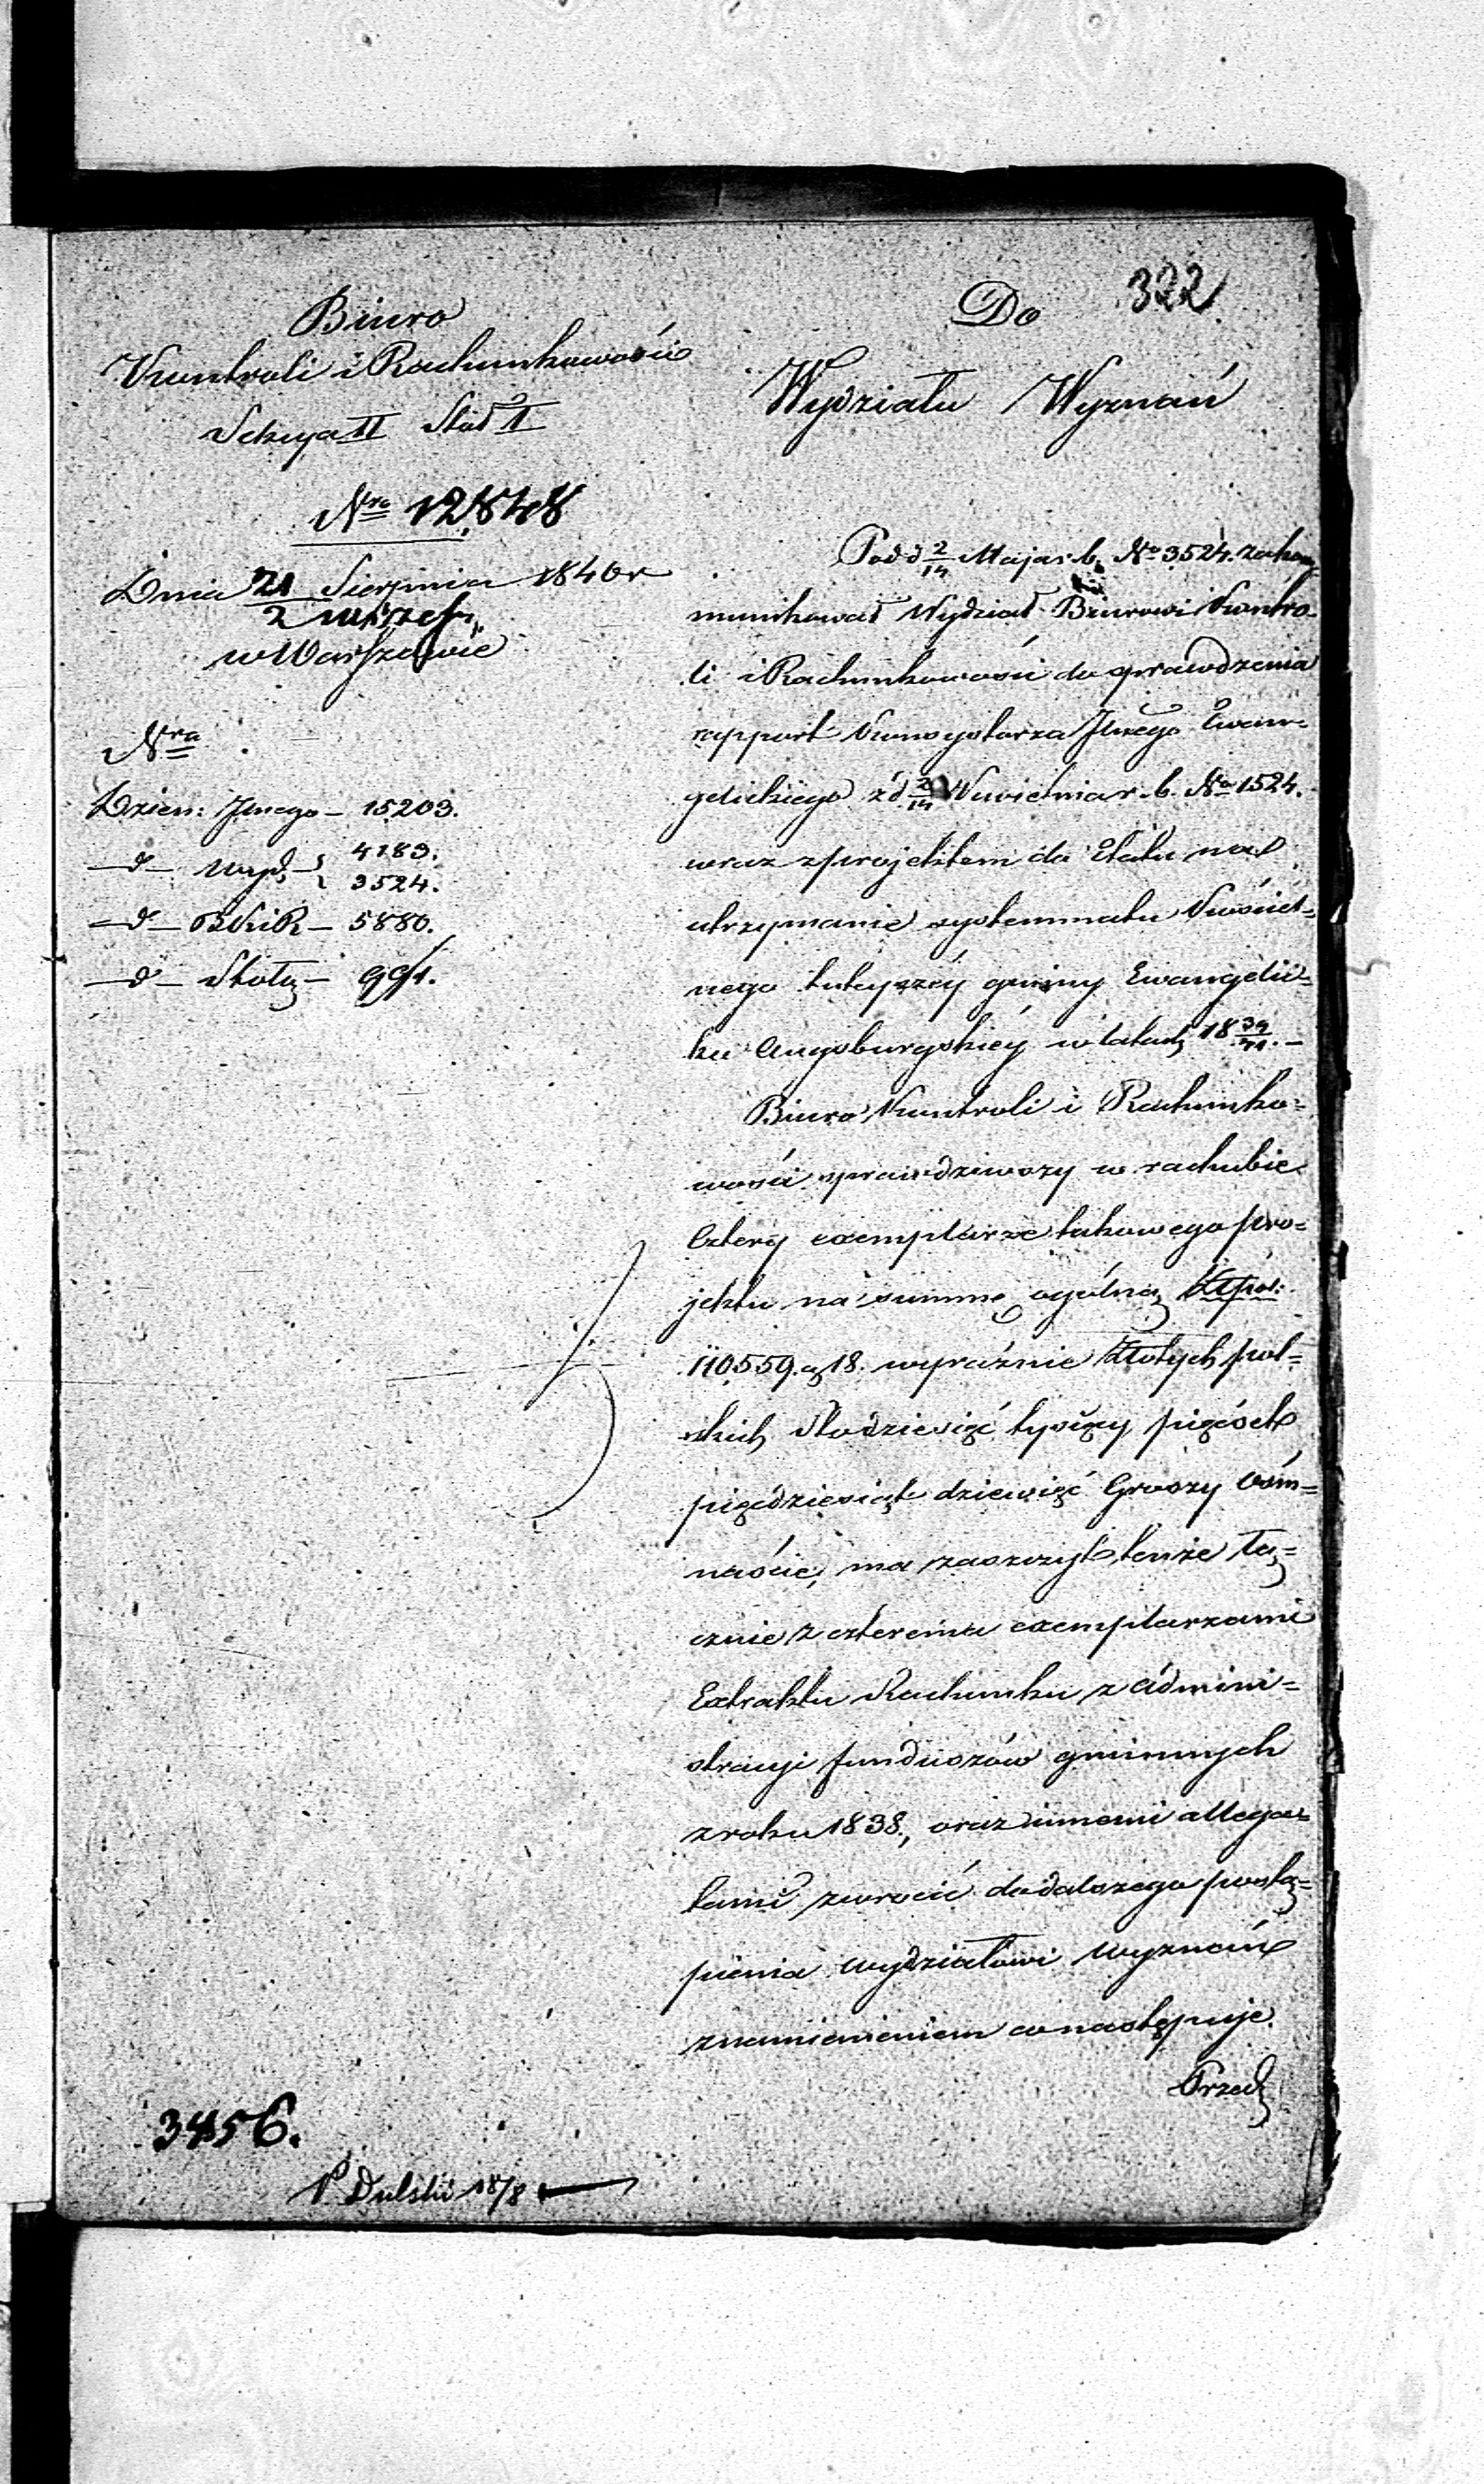 322
Biuro
Kontroli i Rachunkowości
Sekcya II Stół I
Nro 12848
Dnia 21 Sierpnia 1840 r
2 Wrześ.
w Warszawie
Nra
Dzien: Jlnego – 15203.
–d– Wyd. – 4183.
3524.
–d– BKiR – 5880.
–d– Stołu – 991.
Do
Wydziału Wyznań
Pod d 2/14 Maja r. b. No 3524. zakom=
munikował Wydział Biurowi Kontro=
li i Rachunkowości do sprawdzenia
rapport Konsystorza Jlnego Ewan=
gelickiego z d 2/14 Kwietnia r. b. No 1524.
wraz z projektem do Etatu na
utrzymanie systemmatu Kościel=
nego tuteyszéy gminy Ewangelic=
ko Augsburgskiéy w latach 18 39/41. –
Biuro Kontroli i Rachunko=
wości sprawdziwszy w rachubie
Cztery exemplarze takowego pro=
jektu na summę ogólną Złpol:
110,559. g 18. wyraźnie Złotych pol=
skich Stodziesięć tysięcy pięćset
pięćdziesiąt dziewięć Groszy Ośm=
naście, ma zaszczyt tenże łą=
cznie z czterema exemplarzami
Extraktu Rachunku z admini=
stracyi funduszów gminnych
z roku 1838., oraz innemi allega=
tami zwrócić do dalszego postą=
pienia Wydziałowi Wyznań
z namienieniem co następuje.
Przed
3456.
P. Dulski 18/8